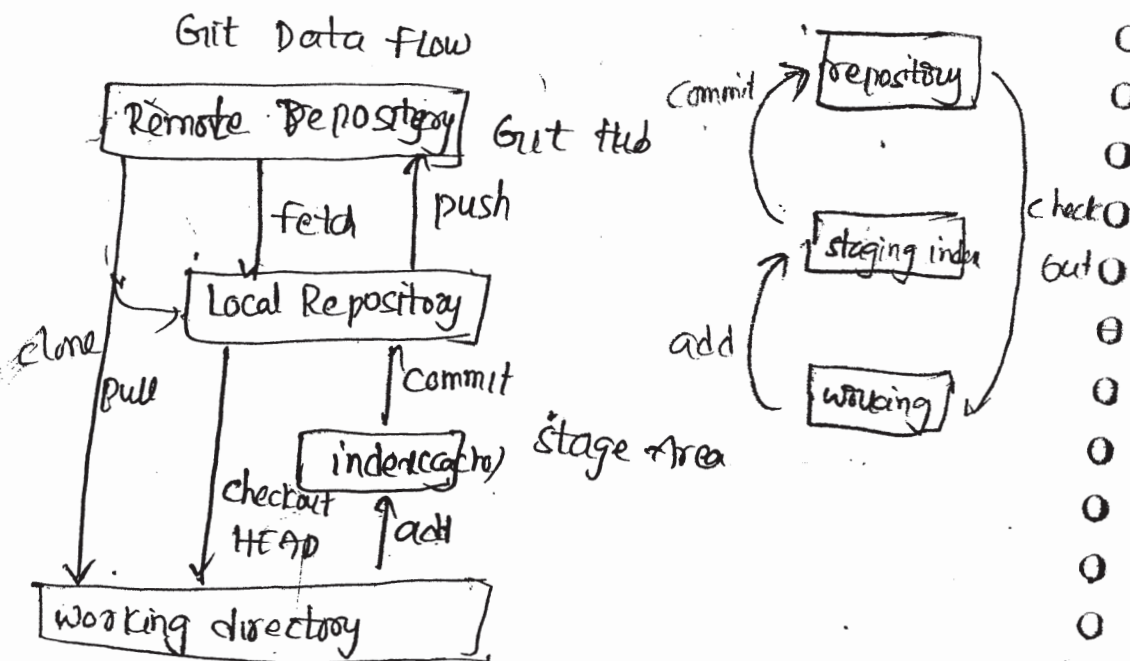 Git Data Flow
Remote Repository
Git Hub
fetch
push
Local Repository
clone
pull
commit
index(cache)
Stage Area
checkout
HEAD
add
working directory
commit
repository
check
out
staging index
add
working